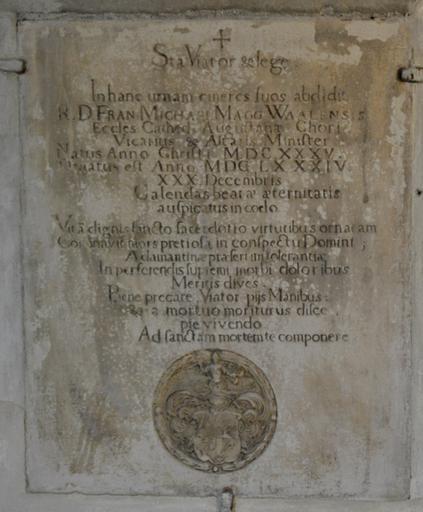 Sta Viator & lege
In hanc urnam cineres suos abdidit
R. D. FRAN. MICHAEL MAGG WAALENSIS
Eccles. Cathed. Augustanæ Chori
Vicarius & Altaris Minister
Natus Anno Christi MDCXXXV.
est Anno MDCLXXXIV
XXX. Decembris
Calendas beatæ æternitatis
auspicatus in cœlo
Vitâ dignis sancto sacerdotio virtutibus ornatam
mors pretiosa in conspectu Domini;
Adamantinæ præsertim tolerantiæ
In perferendis supremi morbi doloribus
Meritis dives.
Bene precare Viator pijs Manibus:
& a mortuo moriturus disce
pie vivendo
Ad sanctam mortem te componere